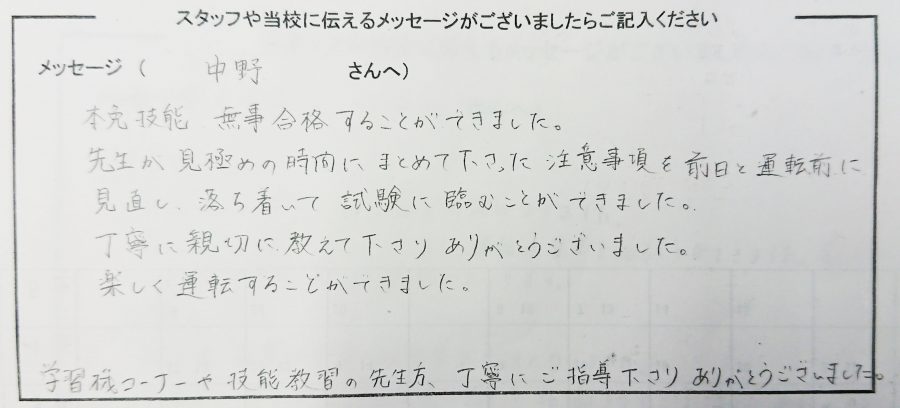 スタッフや当校に伝えるメッセージがございましたらご記入ください
メッセージ ( 中野 さんへ)
本免技能 無事合格することができました。
先生が見極めの時間にまとめて下さった注意事項を前日と運転前に
見直し、落ち着いて試験に臨むことができました。
丁寧に親切に教えて下さりありがとうございました。
楽しく運転することができました。
学習様コーナーや技能教習の先生方、丁寧にご指導下さりありがとうございました。